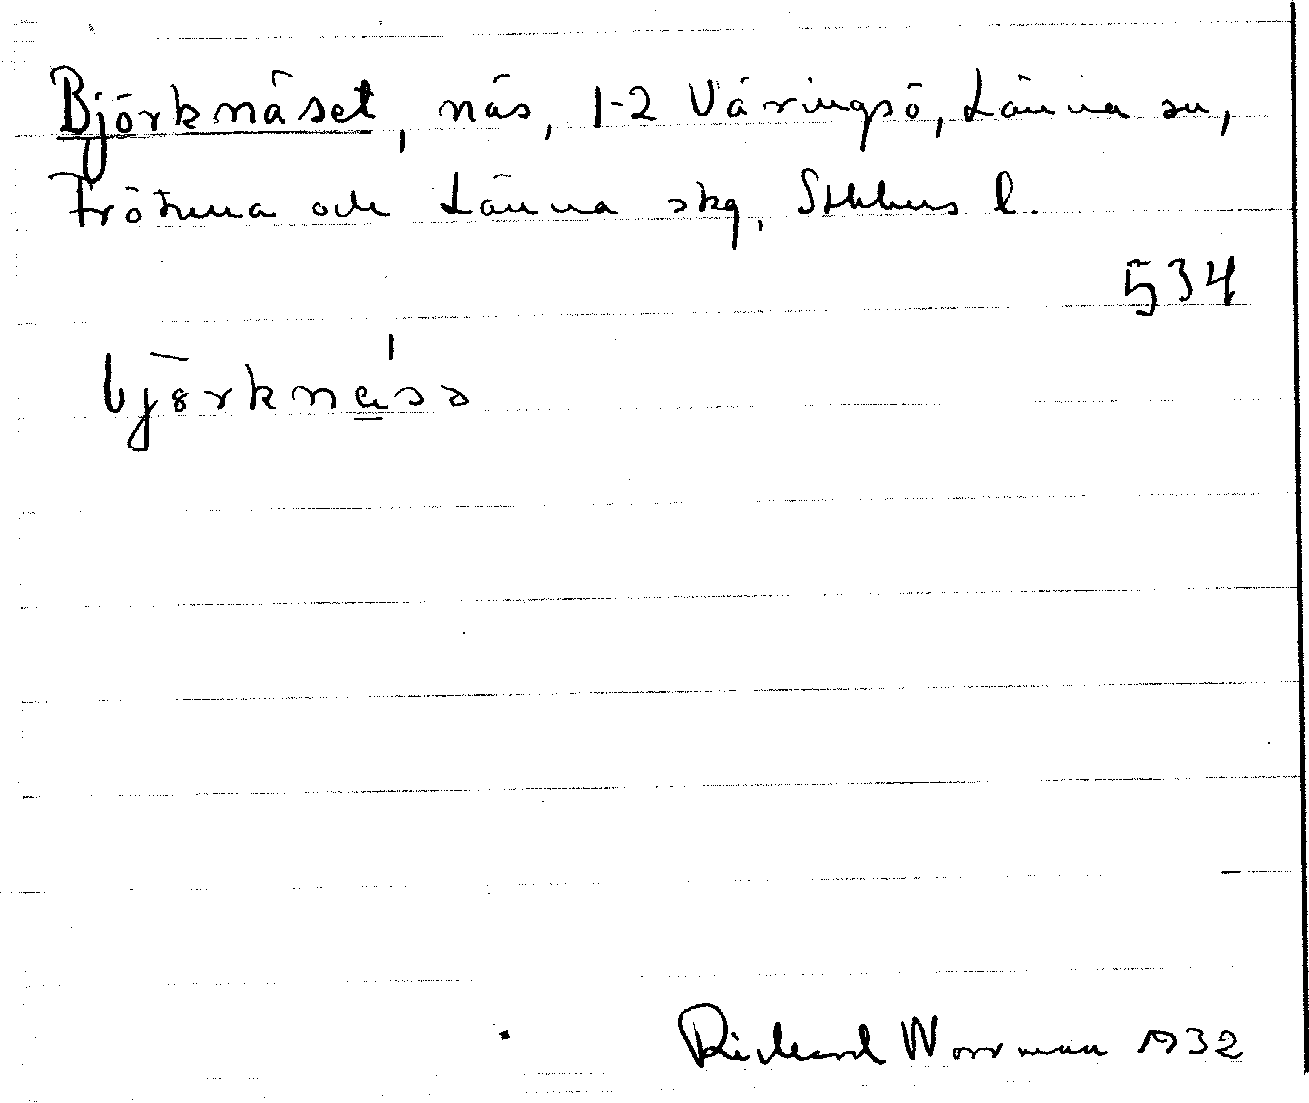 Björknäset, näs, 1-2 Väringsö, Länna sn,
Frötuna och Länna skg, Sthlms l.
534
Rickard Norrman 1932